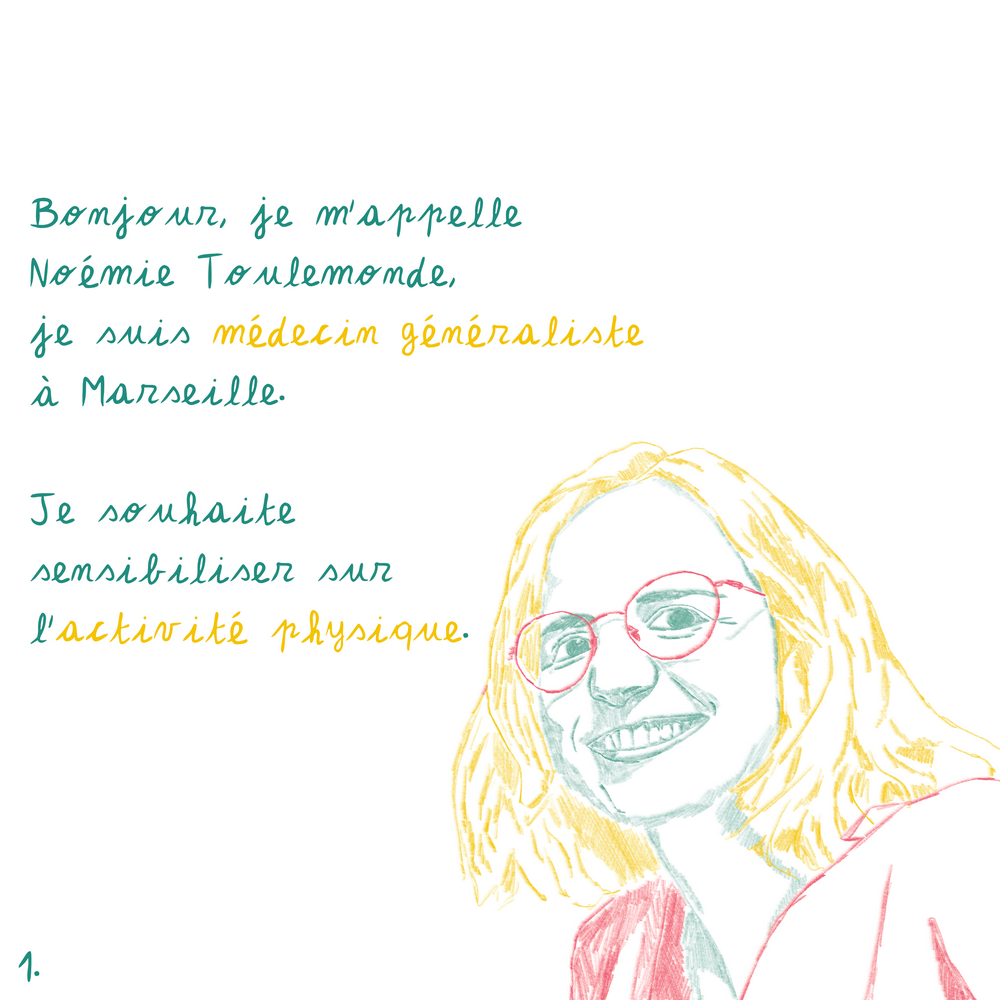 Bonjour, je m'appelle
Noémie Toulemonde,
je suis médecin généraliste
à Marseille.
Je souhaite
sensibiliser sur
l'activité physique.
1.